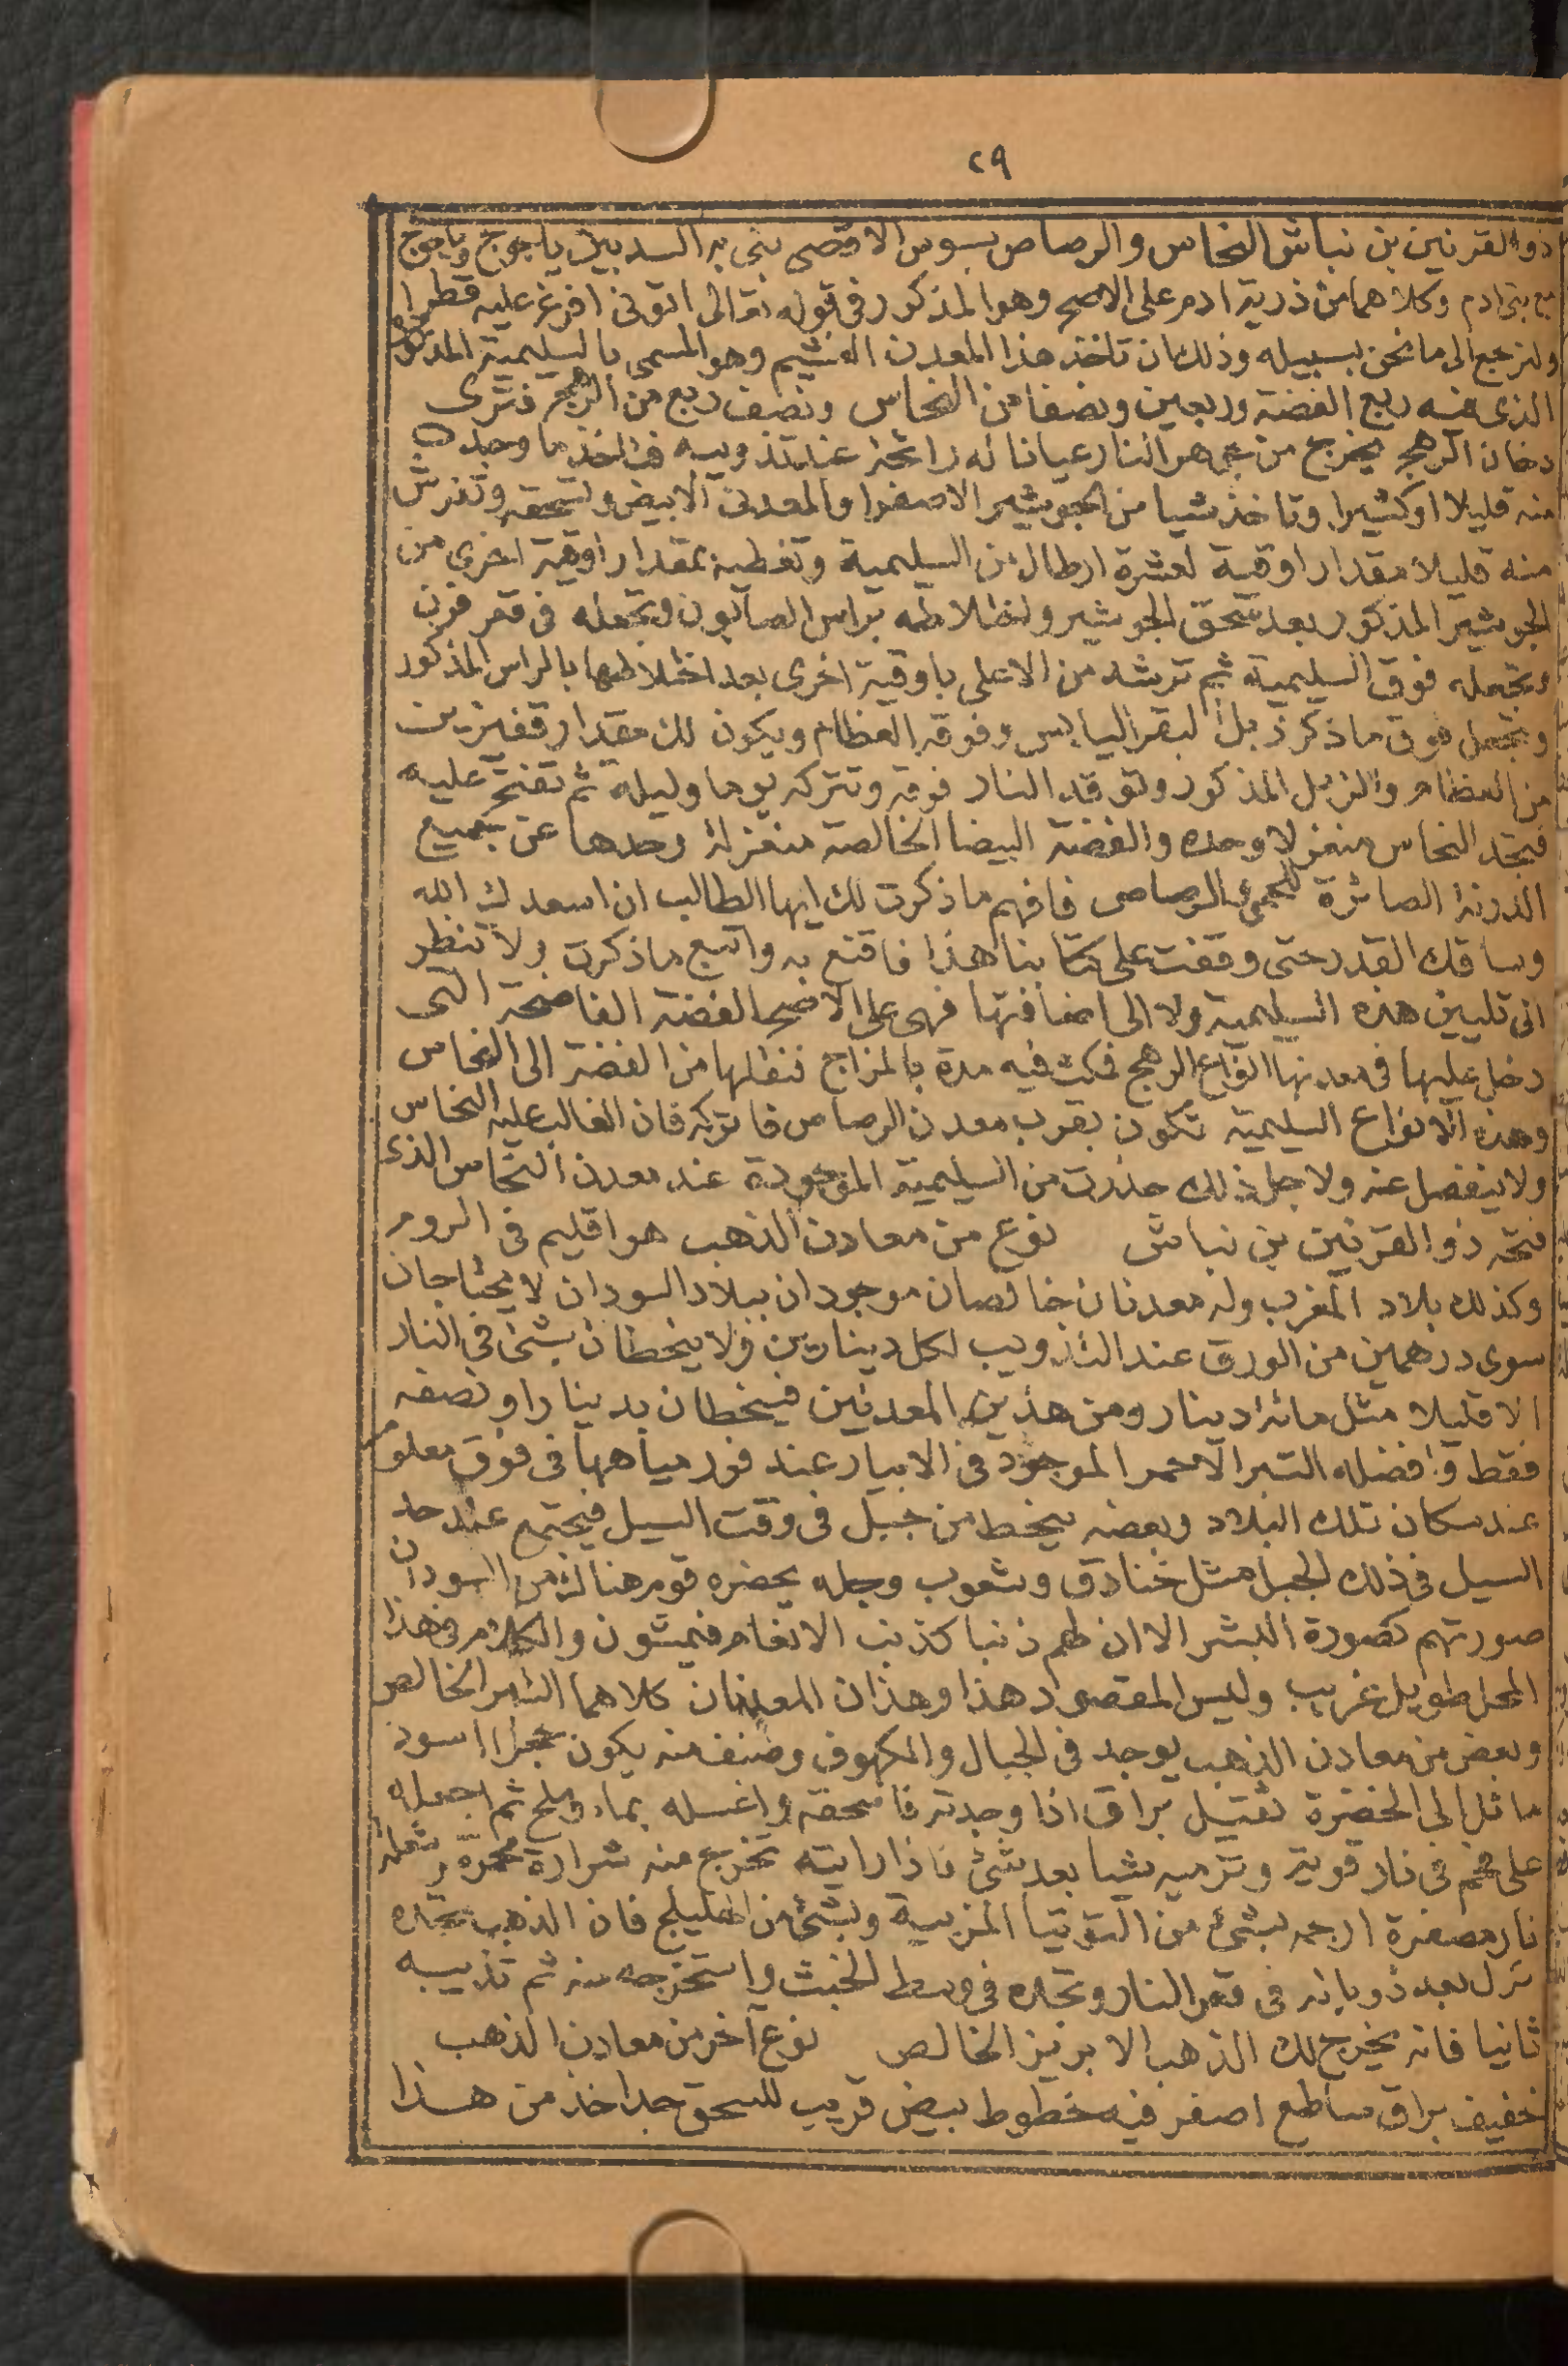 ٢٩
ذو القرنين بن نباش النحاس والرصاص بسوس الاقصى بنى به السد بين ياجوج وماجوج
مع بنى ادم وكلاهما من ذرية ادم على الاصح وهو المذكور فى قوله تعالى اتونى افرغ عليه قطرا
ولنرجع الى ما نحن بسبيله وذلك ان تاخذ هذا المعدن وهو المسمى بالسليمية المذكور
الذى فيه ربع الفضة وربعين ونصفا من النحاس ونصف ربع من الرهج فترى
دخان الرهج يخرج من النار عيانا له رائحة عند تذويبه فتاخذ ما وجدت
منه قليلا او كثيرا وتاخذ شيا من الجوشير الاصفر او المعدن الابيض وتسحقه وتفرش
منه قليلا مقدار اوقية لعشرة ارطال من السليمية وتغطيه بمقدار اوقية اخرى من
الجوشير المذكور بعد سحق الجوشير براس الصابون وتجعله فى قعر فرن
وتجعله فوق السليمية ثم ترشه من الاعلى باوقية اخرى بعد اختلاطها بالراس المذكور
وتجعل فوق ما ذكر زبل البقر اليابس وفوقه العظام ويكون لك مقدار قفيزين
من العظام والزبل المذكور وتوقد النار فوقه وتتركه يوما وليلة ثم تفتح عليه
فتجد النحاس منعزلا وحده والفضة البيضا الخالصة منعزلة وحدها عن جميع
الصائرة الرصاص فافهم ما ذكرت لك ايها الطالب ان اسعدك الله
وساقك القدر حتى وقفت على كتابنا هذا فاقنع به واتبع ما ذكرت ولا تنظر
الى تليين هذه السليمية ولا الى اضافتها فهى على الاصح الفضة التى
دخل عليها فى معدنها انواع الرهج فمكث فيه مدة بالمزاج فنقلها من الفضة الى النحاس
وهذه الانواع السليمية تكون بقرب معدن الرصاص فاتركه فان الغالب عليه النحاس
ولا ينفصل عنه ولاجل ذلك حذرت من السليمية الموجودة عند معدن النحاس الذى
فتحه ذو القرنين بن نباش نوع من معادن الذهب هو اقليم فى الروم
وكذلك بلاد المغرب وله معدنان خالصان موجودان ببلاد السودان لا يحتاجان
سوى درهمين من الورق عند التذويب لكل دينارين ولا ينحطان بشئ فى النار
الا قليلا مثل مائة دينار ومن هذين المعدنين فينحطان بدينار او نصفه
فقط وافضله التبر الاحمر الموجود فى الابيار عند فور مياهها فى فوق معلوم
عند سكان تلك البلاد وبعضه ينحط من جبل فى وقت السيل فيجتمع عند حد
السيل فى ذلك الجبل مثل خنادق وشعوب وجله يحضره قوم هناك من السودان
صورتهم كصورة البشر الا ان لهم ذنبا كذنب الانعام فيمشون والكلام فى هذا
المحل طويل غريب وليس المقصود هذا وهذان المعدنان كلاهما التبر الخالص
وبعض من معادن الذهب يوجد فى الجبال والكهوف وصنف منه يكون حجرا اسود
مائل الى الخضرة ثقيل براق اذا وجدته فاسحقه واغسله بماء وملح ثم اجعله
على فحم فى نار قوية وترميه شيا بعد شئ فاذا رايته تخرج منه شرارة محمرة وشعلة
نار مصفرة ارجمه بشئ من التوتيا المزبية وبشئ من الهليلج فان الذهب تجده
نزل بعد ذوبانه فى قعر النار وتجده فى وسط الخبث واستخرجه منه ثم تذيبه
ثانيا فانه يخرج لك الذهب الابريز الخالص نوع اخر من معادن الذهب
خفيف براق ساطع اصفر فيه خطوط بيض قريب للسحق جدا خذ من هذا